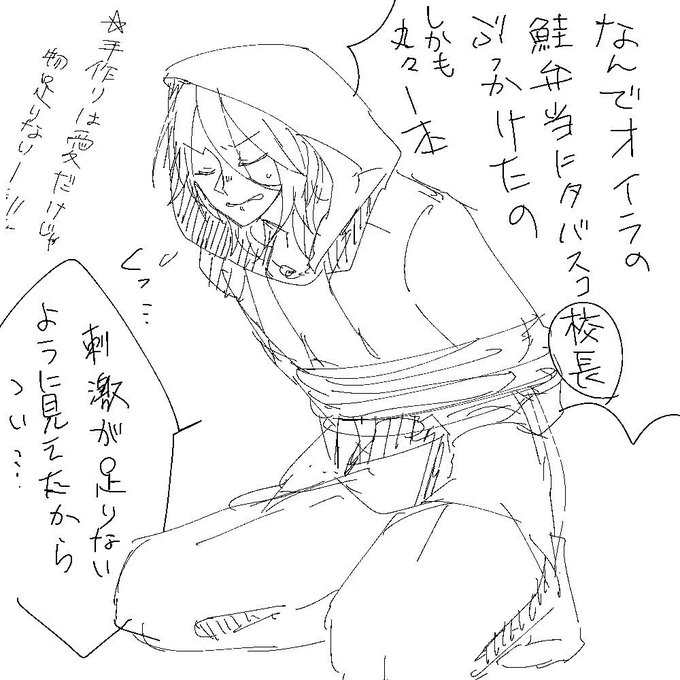 なんでオイラの
鮭弁当にタバスコ
ぶっかけたの
しかも
丸々一本
校長
☆手作りは愛だけじゃ
物足りないー!!
くっ…
刺激が足りない
ように見えたから
つい…